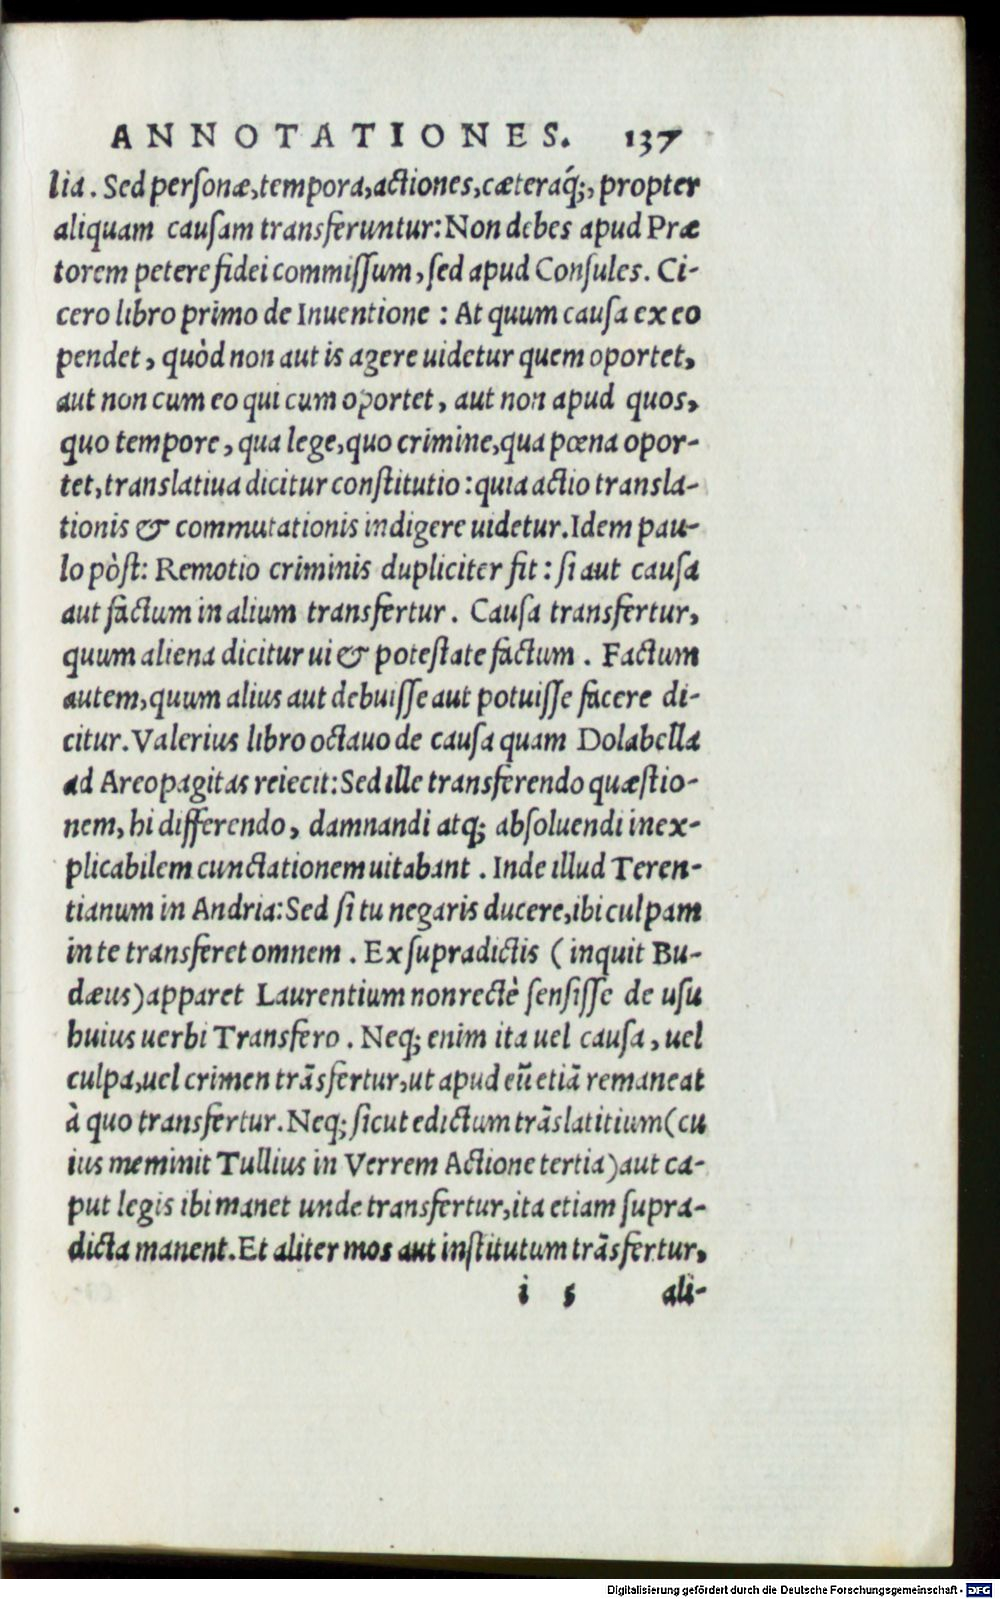 ANNOTATIONES. 137
lia. Sed personæ, tempora, actiones, cæteraq́;, propter
aliquam causam transferuntur: Non debes apud Præ
torem petere fidei commissum, sed apud Consules. Ci-
cero libro primo de Inuentione : At quum causa ex eo
pendet, quòd non aut is agere uidetur quem oportet,
aut non cum eo qui cum oportet, aut non apud quos,
quo tempore, qua lege, quo crimine, qua pœna opor-
tet, translatiua dicitur constitutio: quia actio transla-
tionis & commutationis indigere uidetur. Idem pau-
lo pòst: Remotio criminis dupliciter fit: si aut causa
aut factum in alium transfertur. Causa transfertur,
quum aliena dicitur ui & potestate factum. Factum
autem, quum alius aut debuisse aut potuisse facere di-
citur. Valerius libro octauo de causa quam Dolabella
ad Areopagitas reiecit: Sed ille transferendo quæstio-
nem, hi differendo, damnandi atq; absoluendi inex-
plicabilem cunctationem uitabant. Inde illud Teren-
tianum in Andria: Sed si tu negaris ducere, ibi culpam
in te transferet omnem. Ex supradictis (inquit Bu-
dæus) apparet Laurentium non rectè sensisse de usu
huius uerbi Transfero. Neq; enim ita uel causa, uel
culpa, uel crimen trãsfertur, ut apud eũ etiã remaneat
à quo transfertur. Neq; sicut edictum trãslatitium (cu
ius meminit Tullius in Verrem Actione tertia) aut ca-
put legis ibi manet unde transfertur, ita etiam supra-
dicta manent. Et aliter mos aut institutum trãsfertur,
i 5 ali-
Digitalisierung gefördert durch die Deutsche Forschungsgemeinschaft - DFG